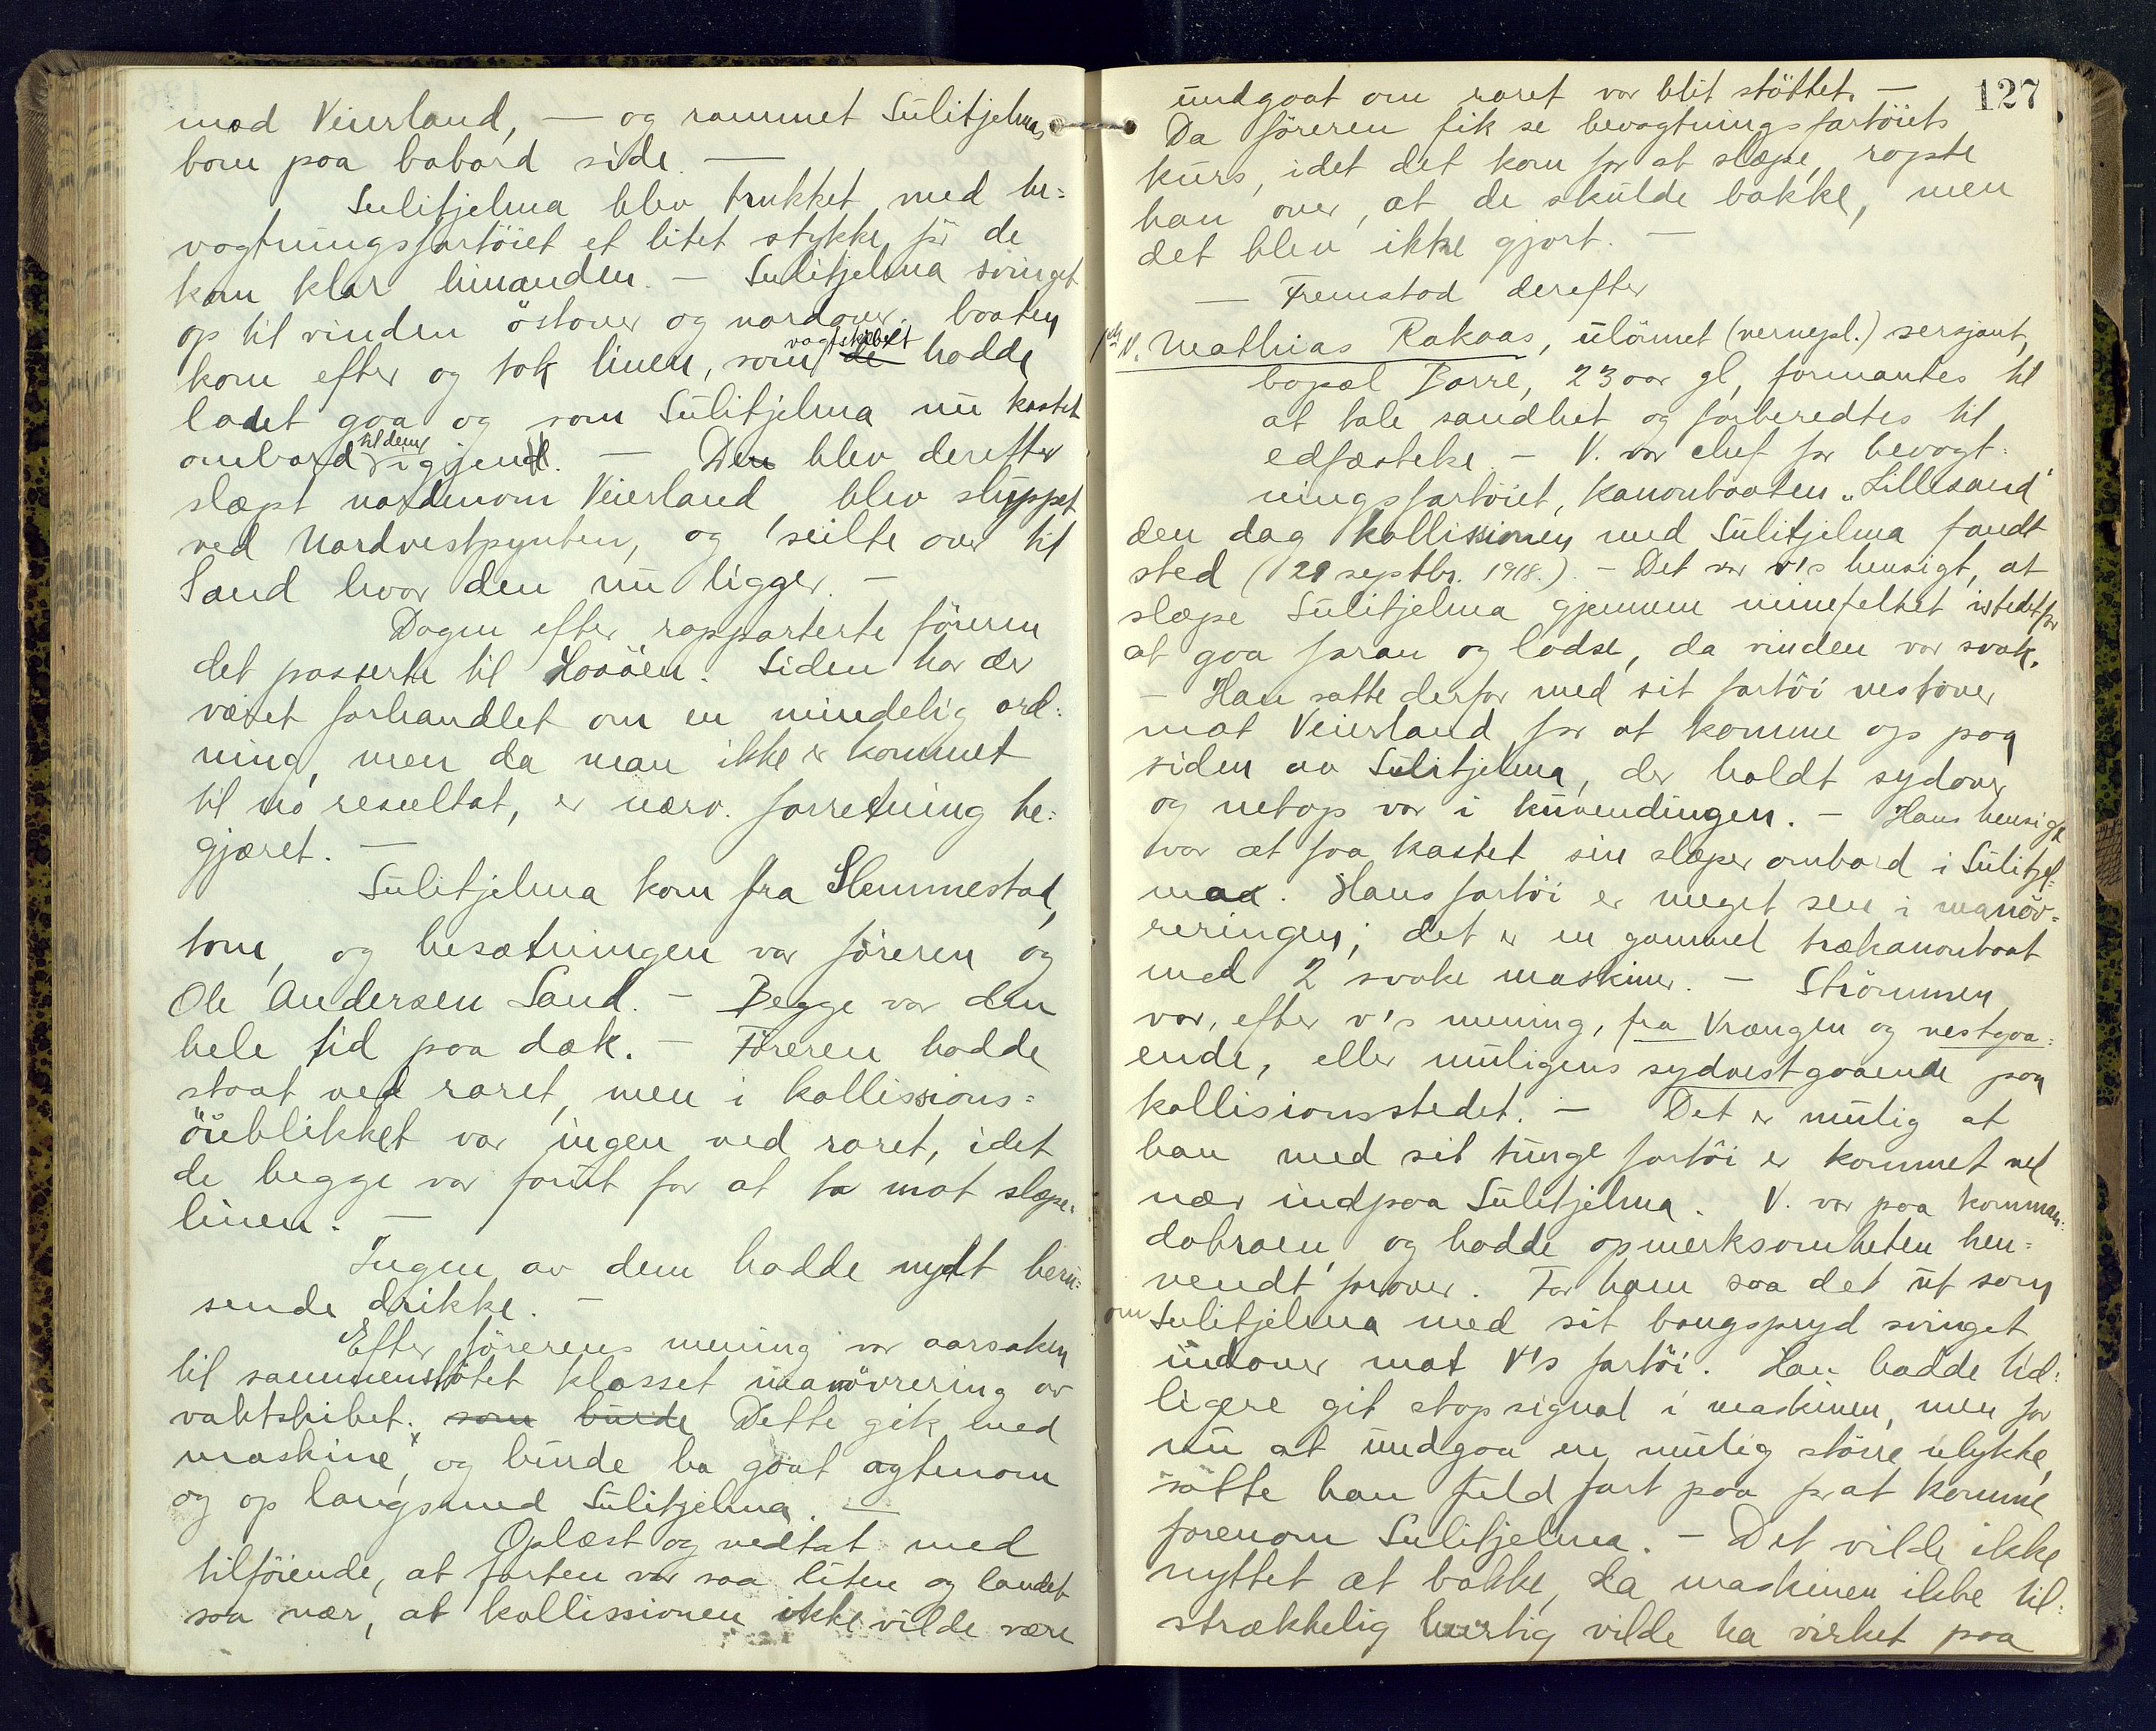 mod Veierland, — og rammet Sulitjelmas
bom paa babord side. —
Sulitjelma blev trukket med be-
vogtningsfartöiet et litet stykke för de
kom klar hinanden. — Sulitjelma svinget
op til vinden östover og nordover, baaten
vagtskibet
kom efter og tok linen, som de hadde
ladet gaa og som Sulitjelma nu kastet
til dem
ombord igjen. — Den blev derefter
slæpt nordenom Veierland, blev sluppet
ved Nordvestpynten, og seilte over til
Sand hvor den nu ligger. —
Dagen efter rapporterte föreren
det passerte til Hoaöen. Siden har der
været forhandlet om en mindelig ord-
ning, men da man ikke er kommet
til no resultat, er nærv. forretning be-
gjæret. —
Sulitjelma kom fra Slemmestad,
tom, og besætningen var föreren og
Ole Andersen Sand. — Begge var den
hele tid paa dæk. — Föreren hadde
staat ved roret, men i kollissions-
öieblikket var ingen ved roret, idet
de begge var forut for at ta mot slæpe-
linen. —
Ingen av dem hadde nydt beru-
sende drikke. —
Efter förerens mening var aarsaken
til sammenstötet klosset manövrering av
vaktskibet; som burde Dette gik med
maskine, og burde ha gaat agtenom
og op langs med Sulitjelma. —
Oplæst og vedtat med
tilföiende, at farten var saa liten og landet
saa nær, at kollissionen ikke vilde være
127
undgaat om roret var blit stöttet. —
Da föreren fik se bevogtningsfartöiets
kurs, idet det kom for at slæpe, ropte
han over, at de skulde bakke, men
det blev ikke gjort. —
— Fremstod derefter
1ste V. Mathias Rakaas, ulönnet (vernepl.) sersjant,
bopæl Borre, 23 aar gl, formantes til
at tale sandhet og forberedtes til
edfæstelse. — V. var chef for bevogt-
ningsfartöiet, kanonbaaten "Lillesand"
den dag kollissionen med Sulitjelma fandt
sted (21 septbr. 1918.). — Det var v's hensigt, at
slæpe Sulitjelma gjennem minefeltet istedetfor
at gaa foran og lodse, da vinden var svak.
— Han satte derfor med sit fartöi vestover
mot Veierland for at komme op paa
siden av Sulitjelma, der holdt sydover
og netop var i kuvendingen. — Hans hensigt
var at faa kastet sin slæper ombord i Sulitjel-
maa. Hans fartöi er meget sen i manöv-
reringen; det er en gammel trækanonbaat
med 2 svake maskiner. — Strömmen
var, efter v's mening, fra Vrængen og vestgaa-
ende, eller muligens sydvestgaaende paa
kollisionsstedet. — Det er mulig at
han med sit tunge fartöi er kommet vel
nær indpaa Sulitjelma. V. var paa komman-
dobroen, og hadde opmerksomheten hen-
vendt forover. For ham saa det ut som
om Sulitjelma med sit baugspryd svinget
indover mot V's fartöi. Han hadde tid-
ligere git stopsignal i maskinen, men for
nu at undgaa en mulig större ulykke,
satte han fuld fart paa for at komme
forenom Sulitjelma. — Det vilde ikke
nyttet at bakke, da maskinen ikke til-
strækkelig hurtig vilde ha virket paa